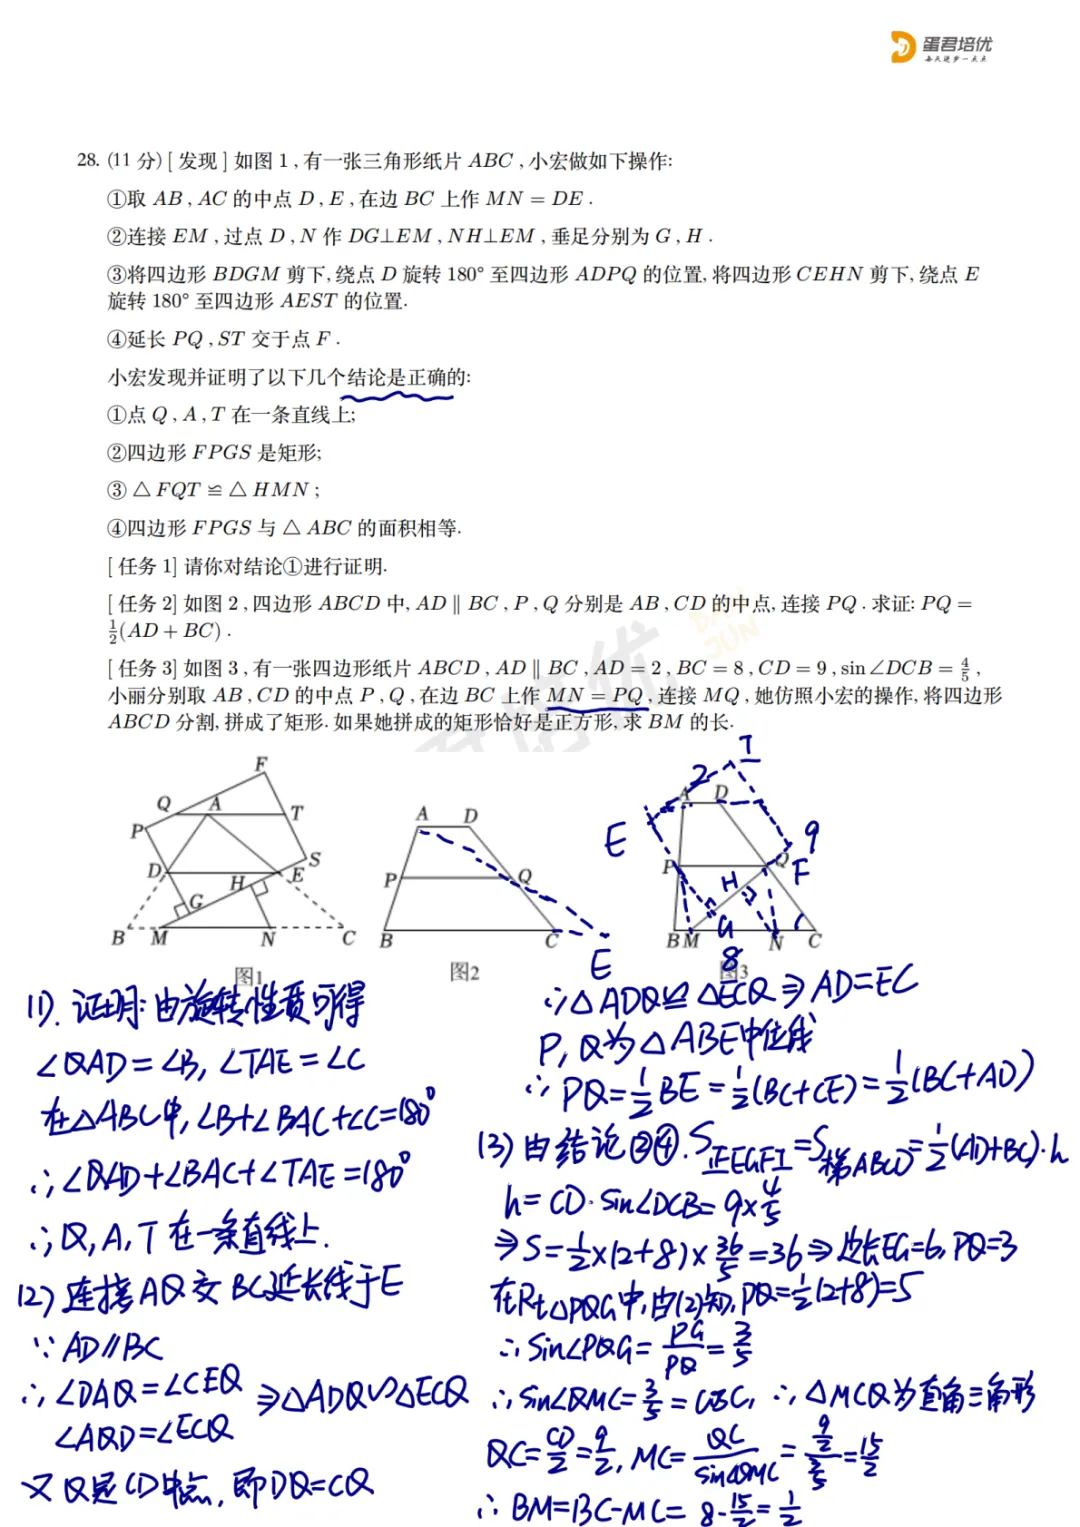 蛋君培优
每天进步一点点
28. (11 分) [ 发现 ] 如图 1 , 有一张三角形纸片 ABC , 小宏做如下操作:
①取 AB , AC 的中点 D , E , 在边 BC 上作 MN = DE .
②连接 EM , 过点 D , N 作 DG⊥EM , NH⊥EM , 垂足分别为 G , H .
③将四边形 BDGM 剪下, 绕点 D 旋转 180° 至四边形 ADPQ 的位置, 将四边形 CEHN 剪下, 绕点 E
旋转 180° 至四边形 AEST 的位置.
④延长 PQ , ST 交于点 F .
小宏发现并证明了以下几个结论是正确的:
①点 Q , A , T 在一条直线上;
②四边形 FPGS 是矩形;
③ △ FQT ≌ △ HMN ;
④四边形 FPGS 与 △ ABC 的面积相等.
[ 任务 1] 请你对结论①进行证明.
[ 任务 2] 如图 2 , 四边形 ABCD 中, AD ∥ BC , P , Q 分别是 AB , CD 的中点, 连接 PQ . 求证: PQ =
1/2(AD + BC) .
[ 任务 3] 如图 3 , 有一张四边形纸片 ABCD , AD ∥ BC , AD = 2 , BC = 8 , CD = 9 , sin ∠DCB = 4/5 ,
小丽分别取 AB , CD 的中点 P , Q , 在边 BC 上作 MN = PQ , 连接 MQ , 她仿照小宏的操作, 将四边形
ABCD 分割, 拼成了矩形. 如果她拼成的矩形恰好是正方形, 求 BM 的长.
F
Q A T
P
D H S E
G
B M N C
图1
A D
P Q
B C
E
图2
T
2
A D
E 9
P Q F
H
G
B M N C
8
图3
(1). 证明: 由旋转性质可得
∠QAD = ∠B, ∠TAE = ∠C
在△ABC中, ∠B+∠BAC+∠C=180°
∴ ∠QAD+∠BAC+∠TAE=180°
∴ Q, A, T 在一条直线上.
(2) 连接 AQ 交 BC延长线于E
∵ AD∥BC
∴ ∠DAQ=∠CEQ ⇒△ADQ∽△ECQ
∠AQD=∠ECQ
又 Q是 CD中点, 即DQ=CQ
∴ △ADQ≌△ECQ ⇒ AD=EC
P, Q为△ABE中位线
∴ PQ=1/2BE=1/2(BC+CE)=1/2(BC+AD)
(3) 由结论②④. S正EGFI=S梯ABCD=1/2(AD+BC)·h
h= CD·Sin∠DCB= 9×4/5
⇒ S=1/2×(2+8)×36/5=36 ⇒ 边长EG=6, PG=3
在Rt△PQG中, 由(2)知, PQ=1/2(2+8)=5
∴ Sin∠PQG= PG/PQ=3/5
∴ Sin∠QMC=3/5=cosC, ∴ △MCQ为直角三角形
QC=CD/2=9/2, MC=QC/Sin∠QMC=9/2/3/5=15/2
∴ BM=BC-MC= 8-15/2=1/2